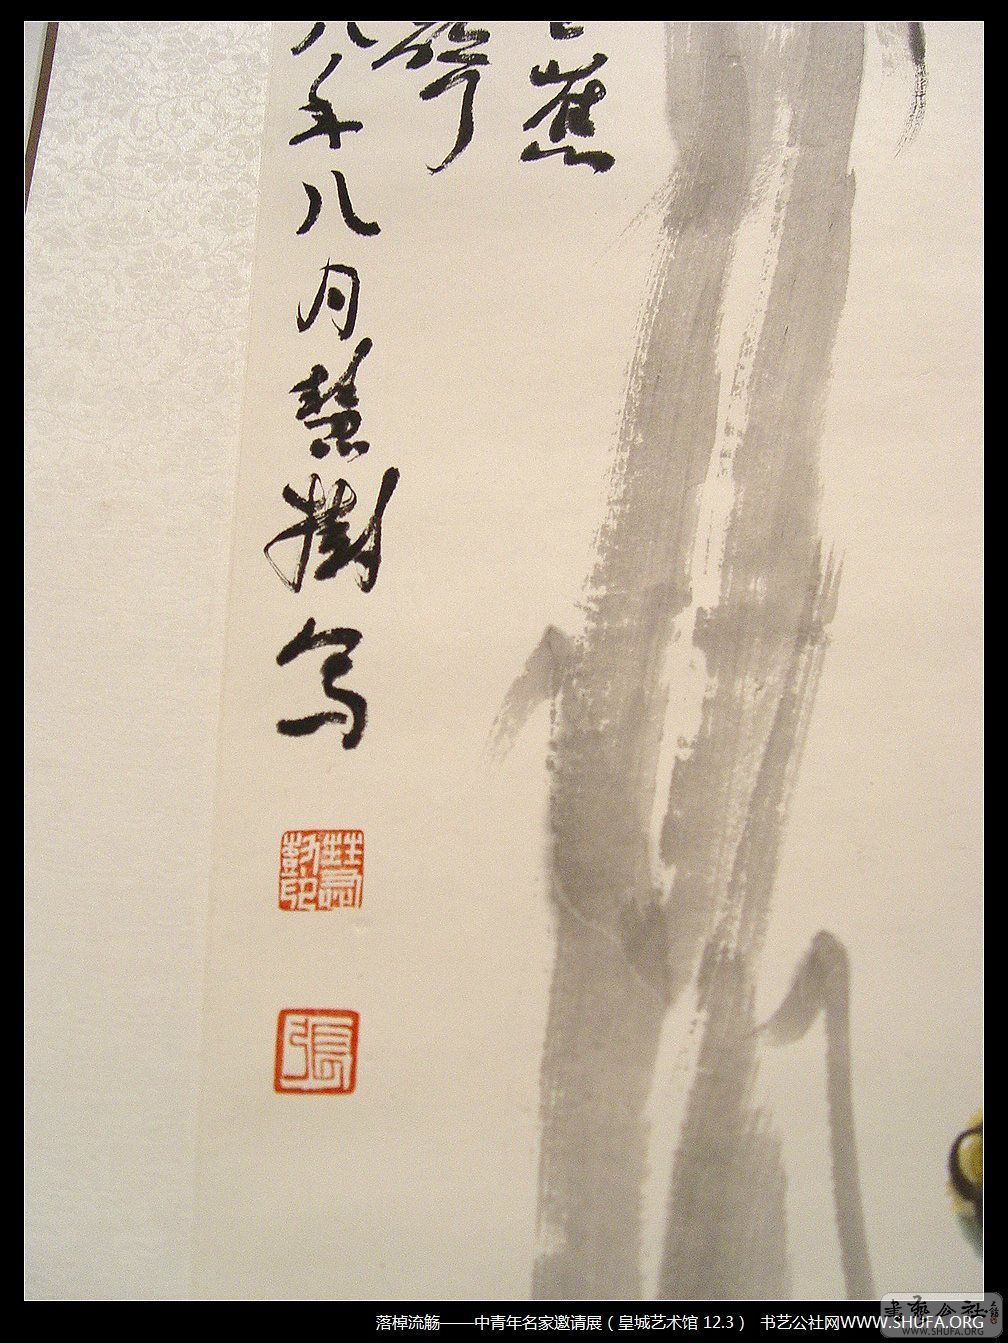 蕉
八年八月慧樹写
張
落棹流觞——中青年名家邀请展（皇城艺术馆 12.3） 书艺公社网WWW.SHUFA.ORG
書藝公社
WWW.SHUFA.ORG